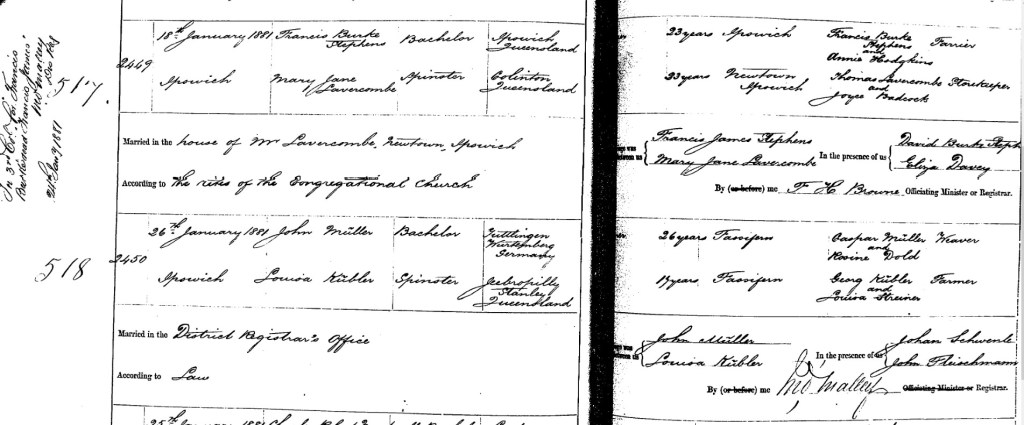 In 3rd Col for Francis
Burke read Francis James
24 Jany 1881
517.
2449
18th January 1881 Francis Burke Stephens Bachelor Ipswich Queensland
Ipswich Mary Jane Lavercombe Spinster Colinton Queensland
23 years Ipswich Francis Burke Stephens and Annie Hodgkins Farrier
23 years Newtown Ipswich Thomas Lavercombe and Joyce Badcock Storekeeper
Married in the house of Mr Lavercombe, Newtown, Ipswich
According to The rites of the Congregational Church
Francis James Stephens
Mary Jane Lavercombe
In the presence of us
David Burke Steph
Eliza Davey
By (or before) me F H Browne Officiating Minister or Registrar.
518
2450
26th January 1881 John Müller Bachelor Tuttlingen Wurtemberg Germany
Ipswich Louisa Kübler Spinster Jeebropilly Stanley Queensland
26 years Fassifern Caspar Müller and Rosine Dold Weaver
17 years Fassifern Georg Kübler and Louisa Streiner Farmer
Married in the District Registrar's Office
According to Law
John Müller
Louisa Kübler
In the presence of us
Johan Schwenle
John Fleischmann
By (or before) me Officiating Minister or Registrar.
25th January 1881